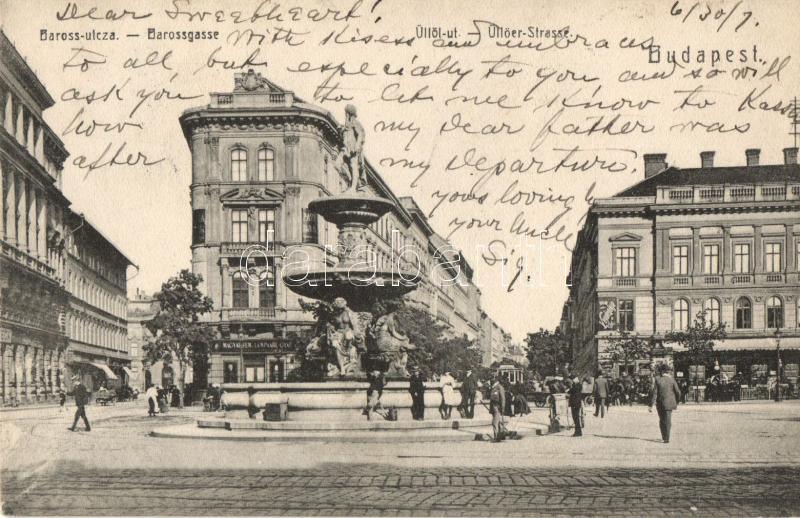 Dear Sweetheart!
6/30/7.
Baross-utcza. — Barossgasse
Üllői-ut. — Üllőer-Strasse.
Budapest.
With Kisses and embraces
to all but especially to you and so will
ask you to let me Know to
how my dear father was
after my departure.
yours loving by
your Uncle
Sig.
MAGYAR FÉM
darabanth